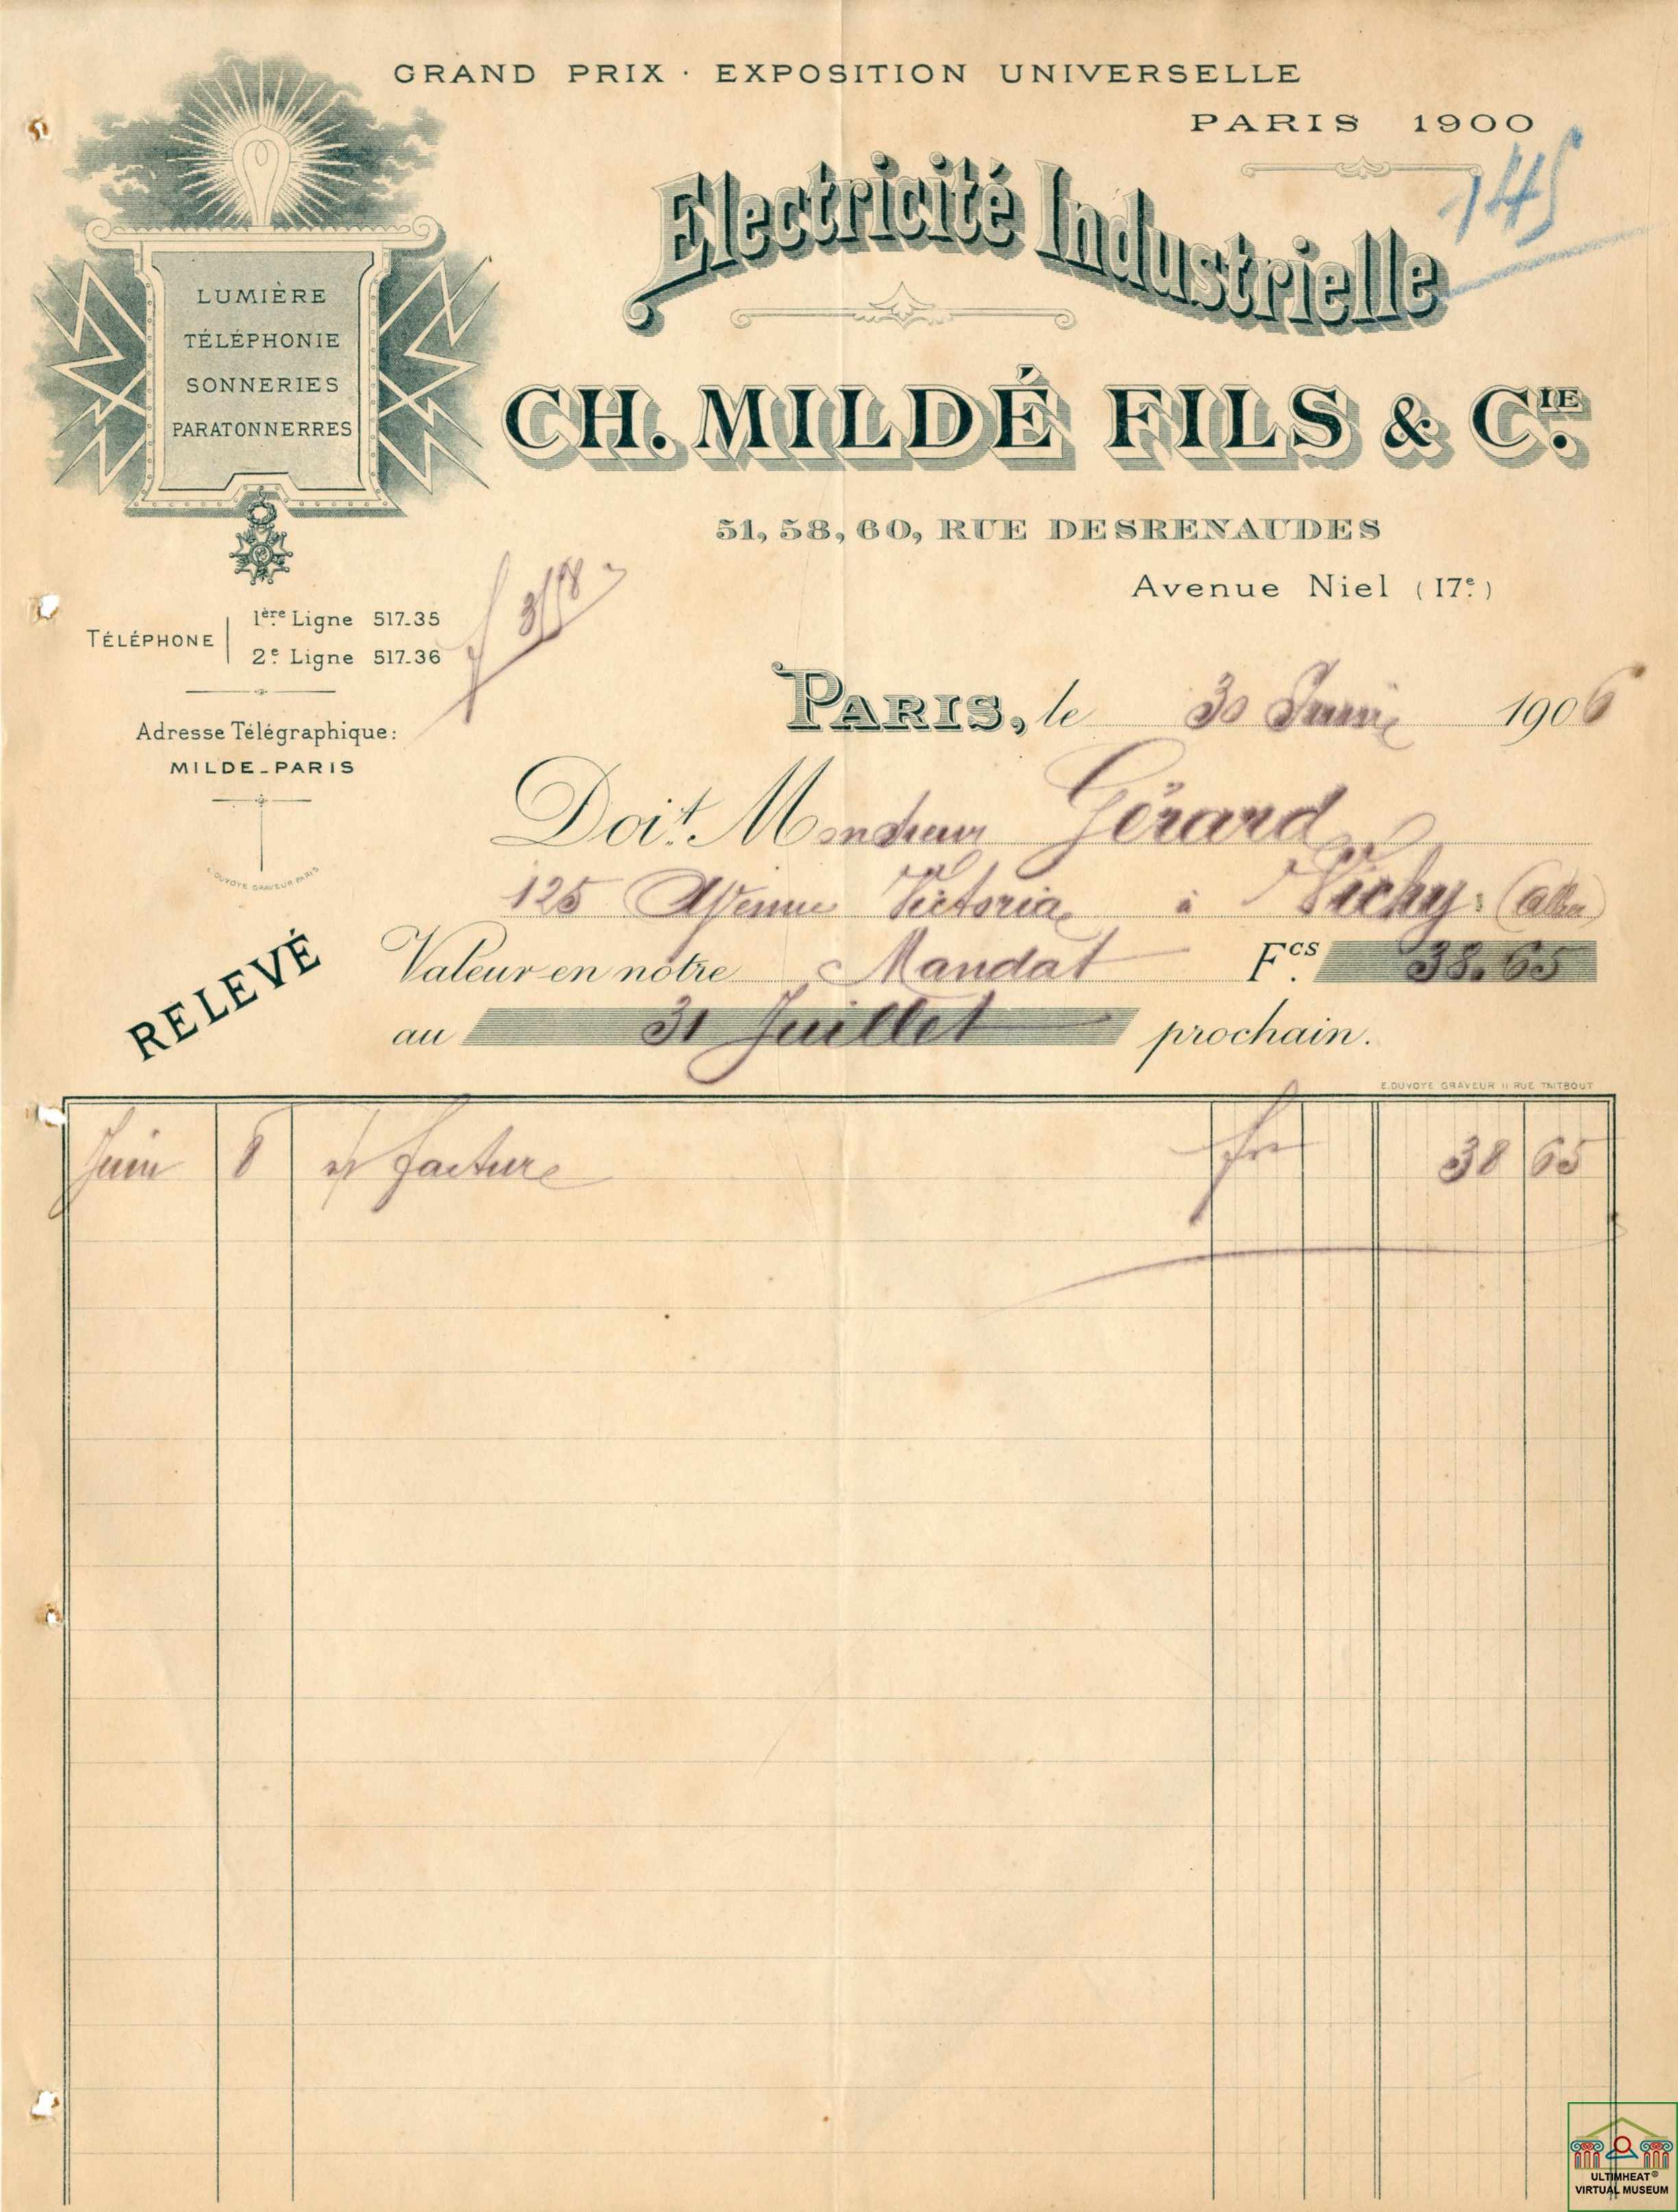 GRAND PRIX · EXPOSITION UNIVERSELLE
PARIS 1900
145
Electricité Industrielle
LUMIÈRE
TÉLÉPHONIE
SONNERIES
PARATONNERRES
CH. MILDÉ FILS & CIE.
51, 58, 60, RUE DESRENAUDES
Avenue Niel (17e)
TÉLÉPHONE
1ère Ligne 517-35
2e Ligne 517-36
Adresse Télégraphique:
MILDE-PARIS
E. DUVOYE GRAVEUR PARIS
PARIS, le 30 Juin 1906
Doit Monsieur Gérard
125 Avenue Victoria à Vichy (Allier)
RELEVÉ
Valeur en nôtre Mandat Fcs. 38.65
au 31 Juillet prochain.
E.DUVOYE GRAVEUR 11 RUE TAITBOUT
Juin 8 n/ facture frs 38 65
ULTIMHEAT®
VIRTUAL MUSEUM